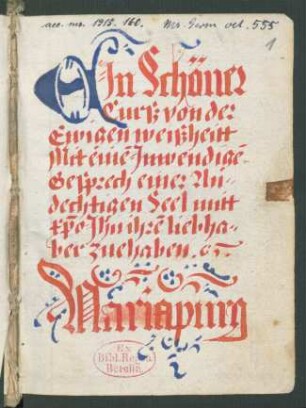 acc. ms. 1918. 160. Ms. Germ. oct. 555
1
Ein Schöner
Curß von der
Ewigen weißheitt
Mit eine Inwendigē
Gesprech einer An-
dechtigen Seel mitt
xp̄o Ihn ihrē liebha-
ber zuehaben. ec.
Mariapurg
Ex
Bibl. Regia
Berolin.